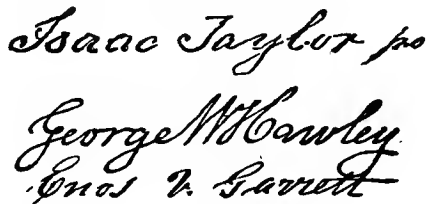 Isaac Taylor po
George W Hawley
Enos V. Garrett